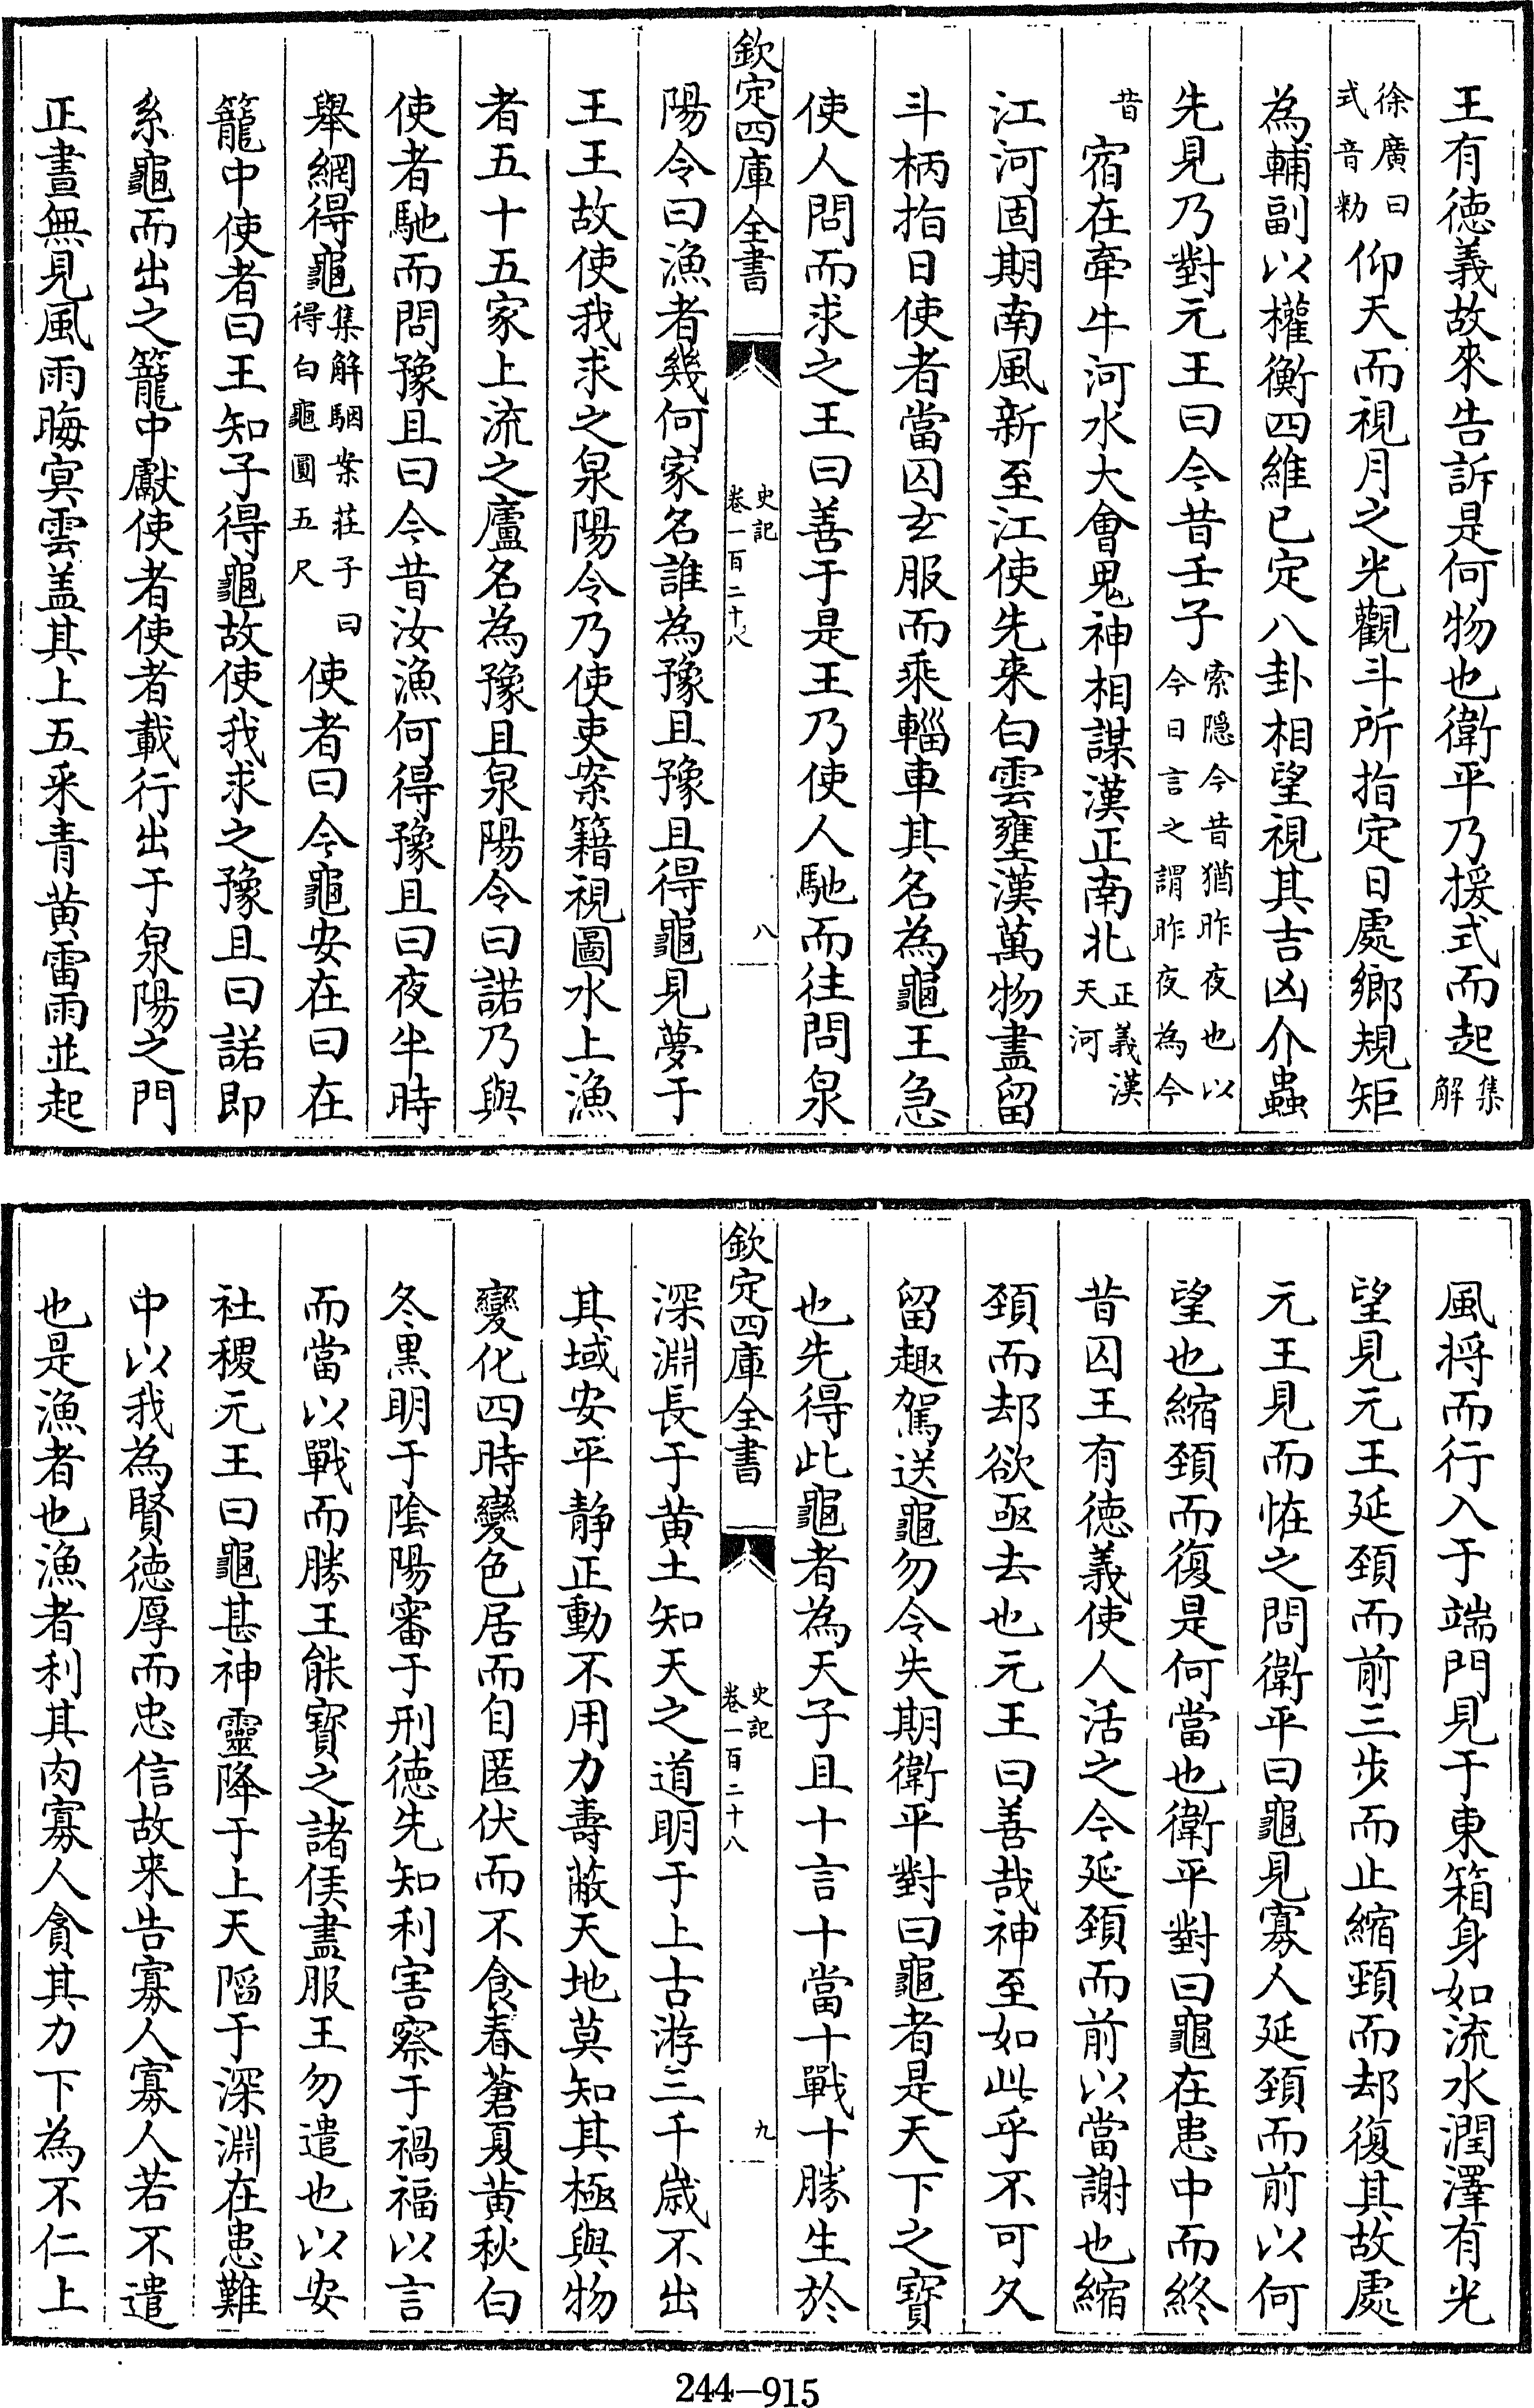 王有徳義故來告訴是何物也衛平乃援式而起集解
徐廣曰式音勑仰天而視月之光觀斗所指定日處鄉規矩
為輔副以權衡四維已定八卦相望視其吉凶介蟲
先見乃對元王曰今昔壬子索隠今昔猶昨夜也以今日言之謂昨夜為今
昔宿在牽牛河水大會鬼神相謀漢正南北正義漢天河
江河固期南風新至江使先来白雲壅漢萬物盡留
斗柄指日使者當囚玄服而乘輜車其名為龜王急
使人問而求之王曰善于是王乃使人馳而往問泉
欽定四庫全書 史記卷一百二十八 八
陽令曰漁者幾何家名誰為豫且豫且得龜見夢于
王王故使我求之泉陽令乃使吏案籍視圖水上漁
者五十五家上流之廬名為豫且泉陽令曰諾乃與
使者馳而問豫且曰今昔汝漁何得豫且曰夜半時
舉網得龜集解駰案莊子曰得白龜圓五尺使者曰今龜安在曰在
籠中使者曰王知子得龜故使我求之豫且曰諾即
系龜而出之籠中獻使者使者載行出于泉陽之門
正晝無見風雨晦㝠雲盖其上五采青黄雷雨並起
風将而行入于端門見于東箱身如流水潤澤有光
望見元王延頸而前三步而止縮頸而却復其故處
元王見而恠之問衛平曰龜見寡人延頸而前以何
望也縮頸而復是何當也衛平對曰龜在患中而終
昔囚王有徳義使人活之今延頸而前以當謝也縮
頸而却欲亟去也元王曰善哉神至如此乎不可久
留趣駕送龜勿令失期衛平對曰龜者是天下之寶
也先得此龜者為天子且十言十當十戰十勝生於
欽定四庫全書 史記卷一百二十八 九
深淵長于黄土知天之道明于上古游三千歳不出
其域安平静正動不用力壽蔽天地莫知其極與物
變化四時變色居而自匿伏而不食春蒼夏黄秋白
冬黒明于隂陽審于刑徳先知利害察于禍福以言
而當以戰而勝王能寳之諸侯盡服王勿遣也以安
社稷元王曰龜甚神靈降于上天䧟于深淵在患難
中以我為賢徳厚而忠信故来告寡人寡人若不遣
也是漁者也漁者利其肉寡人貪其力下為不仁上
244—915